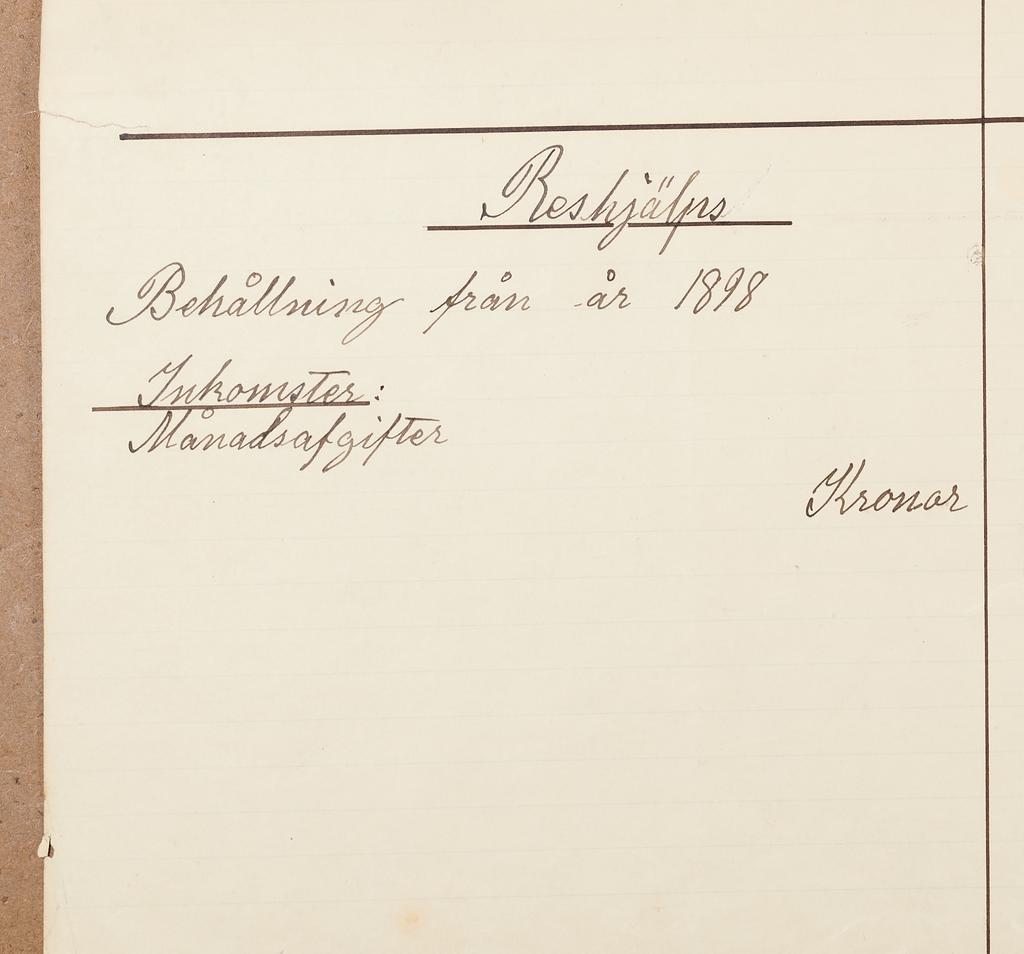 Reshjälps
Behållning från år 1898
Inkomster:
Månadsafgifter
Kronor